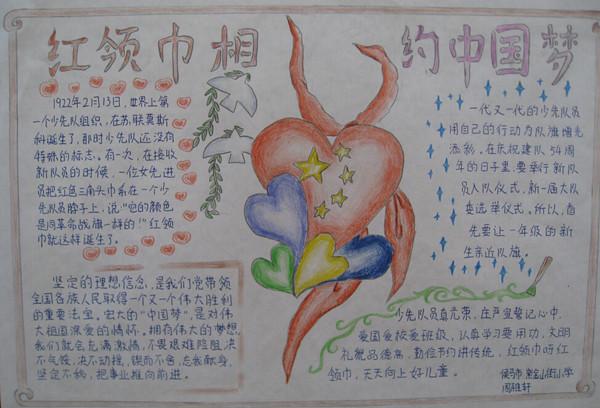 红领巾相约中国梦
1922年2月13日,世界上第
一个少先队组织,在苏联莫斯
科诞生了,那时少先队还没有
特殊的标志。有一次,在接收
新队员的时候,一位女先进
员把红色三角头巾系在一个少
先队员脖子上,说:“它的颜色
是同革命战旗一样的!”红领
巾就这样诞生了。
一代又一代的少先队员
用自己的行动为队旗增光
添彩。在庆祝建队54周
年的日子里,要举行新队
员入队仪式,新一届大队
委选举仪式。所以,首
先要让一年级的新
生亲近队旗。
坚定的理想信念,是我们党带领
全国各族人民取得一个又一个伟大胜利
的重要法宝,宏大的“中国梦”,是对伟
大祖国深爱的情怀。拥有伟大的梦想,
我们就会充满激情,不畏艰难险阻,决
不气馁,决不动摇,锲而不舍,忘我献身,
坚定不移,把事业推向前进。
少先队员真光荣,庄严宣誓记心中,
爱国爱校爱班级,认真学习要用功,文明
礼貌品德高,勤俭节约讲传统,红领巾呀红
领巾,天天向上好儿童。
侯马市 紫金山街小学
周雅轩